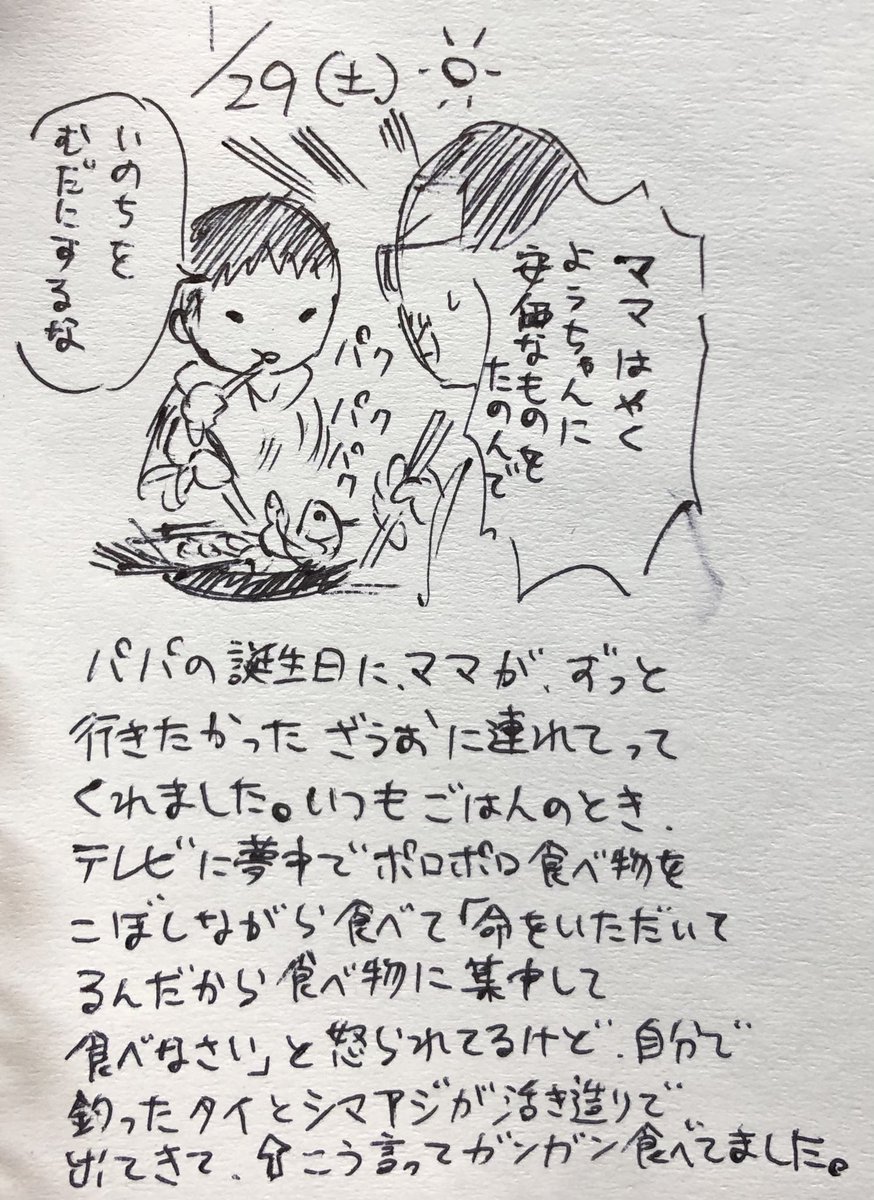 1/29(土)
いのちを
むだにするな
ママはやく
ようちゃんに
安価なものを
たのんで
パク
パク
パク
パパの誕生日に、ママが、ずっと
行きたかったざうおに連れてって
くれました。いつもごはんのとき、
テレビに夢中でポロポロ食べ物を
こぼしながら食べて「命をいただいて
るんだから食べ物に集中して
食べなさい」と怒られてるけど、自分で
釣ったタイとシマアジが活き造りで
出てきて、⇧こう言ってガンガン食べてました。